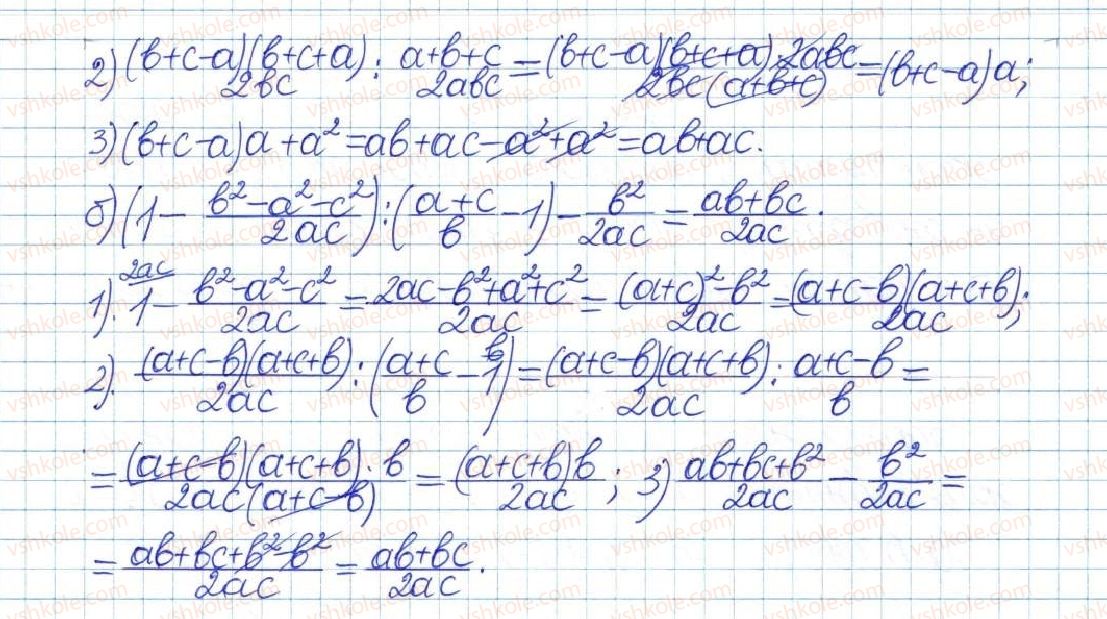 2) (b+c-a)(b+c+a)/2bc : (a+b+c)/2abc = (b+c-a)(b+c+a)·2abc/2bc(a+b+c) = (b+c-a)a;
3) (b+c-a)a + a² = ab+ac-a²+a² = ab+ac.
б) (1 - (b²-a²-c²)/2ac) : ((a+c)/b - 1) - b²/2ac = (ab+bc)/2ac.
1). 2ac 1 - (b²-a²-c²)/2ac = (2ac-b²+a²+c²)/2ac = ((a+c)²-b²)/2ac = (a+c-b)(a+c+b)/2ac;
2). (a+c-b)(a+c+b)/2ac : ((a+c)/b - 1 b) = (a+c-b)(a+c+b)/2ac : (a+c-b)/b =
= (a+c-b)(a+c+b)·b/2ac(a+c-b) = (a+c+b)b/2ac; 3) (ab+bc+b²)/2ac - b²/2ac =
= (ab+bc+b²-b²)/2ac = (ab+bc)/2ac.